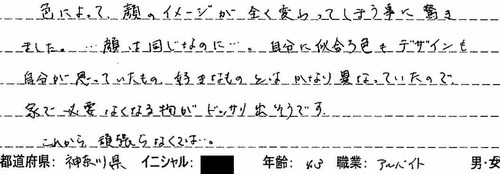 色によって、顔のイメージが全く変わってしまう事に驚き
ました。…顔は同じなのに…。自分に似合う色もデザインも
自分が思っていたもの、好きなものとはかなり異なっていたので、
家で必要なくなる物がドッサリ出そうです。
これから頑張らなくては…。
都道府県: 神奈川県 イニシャル: 年齢: 43 職業: アルバイト 男・女